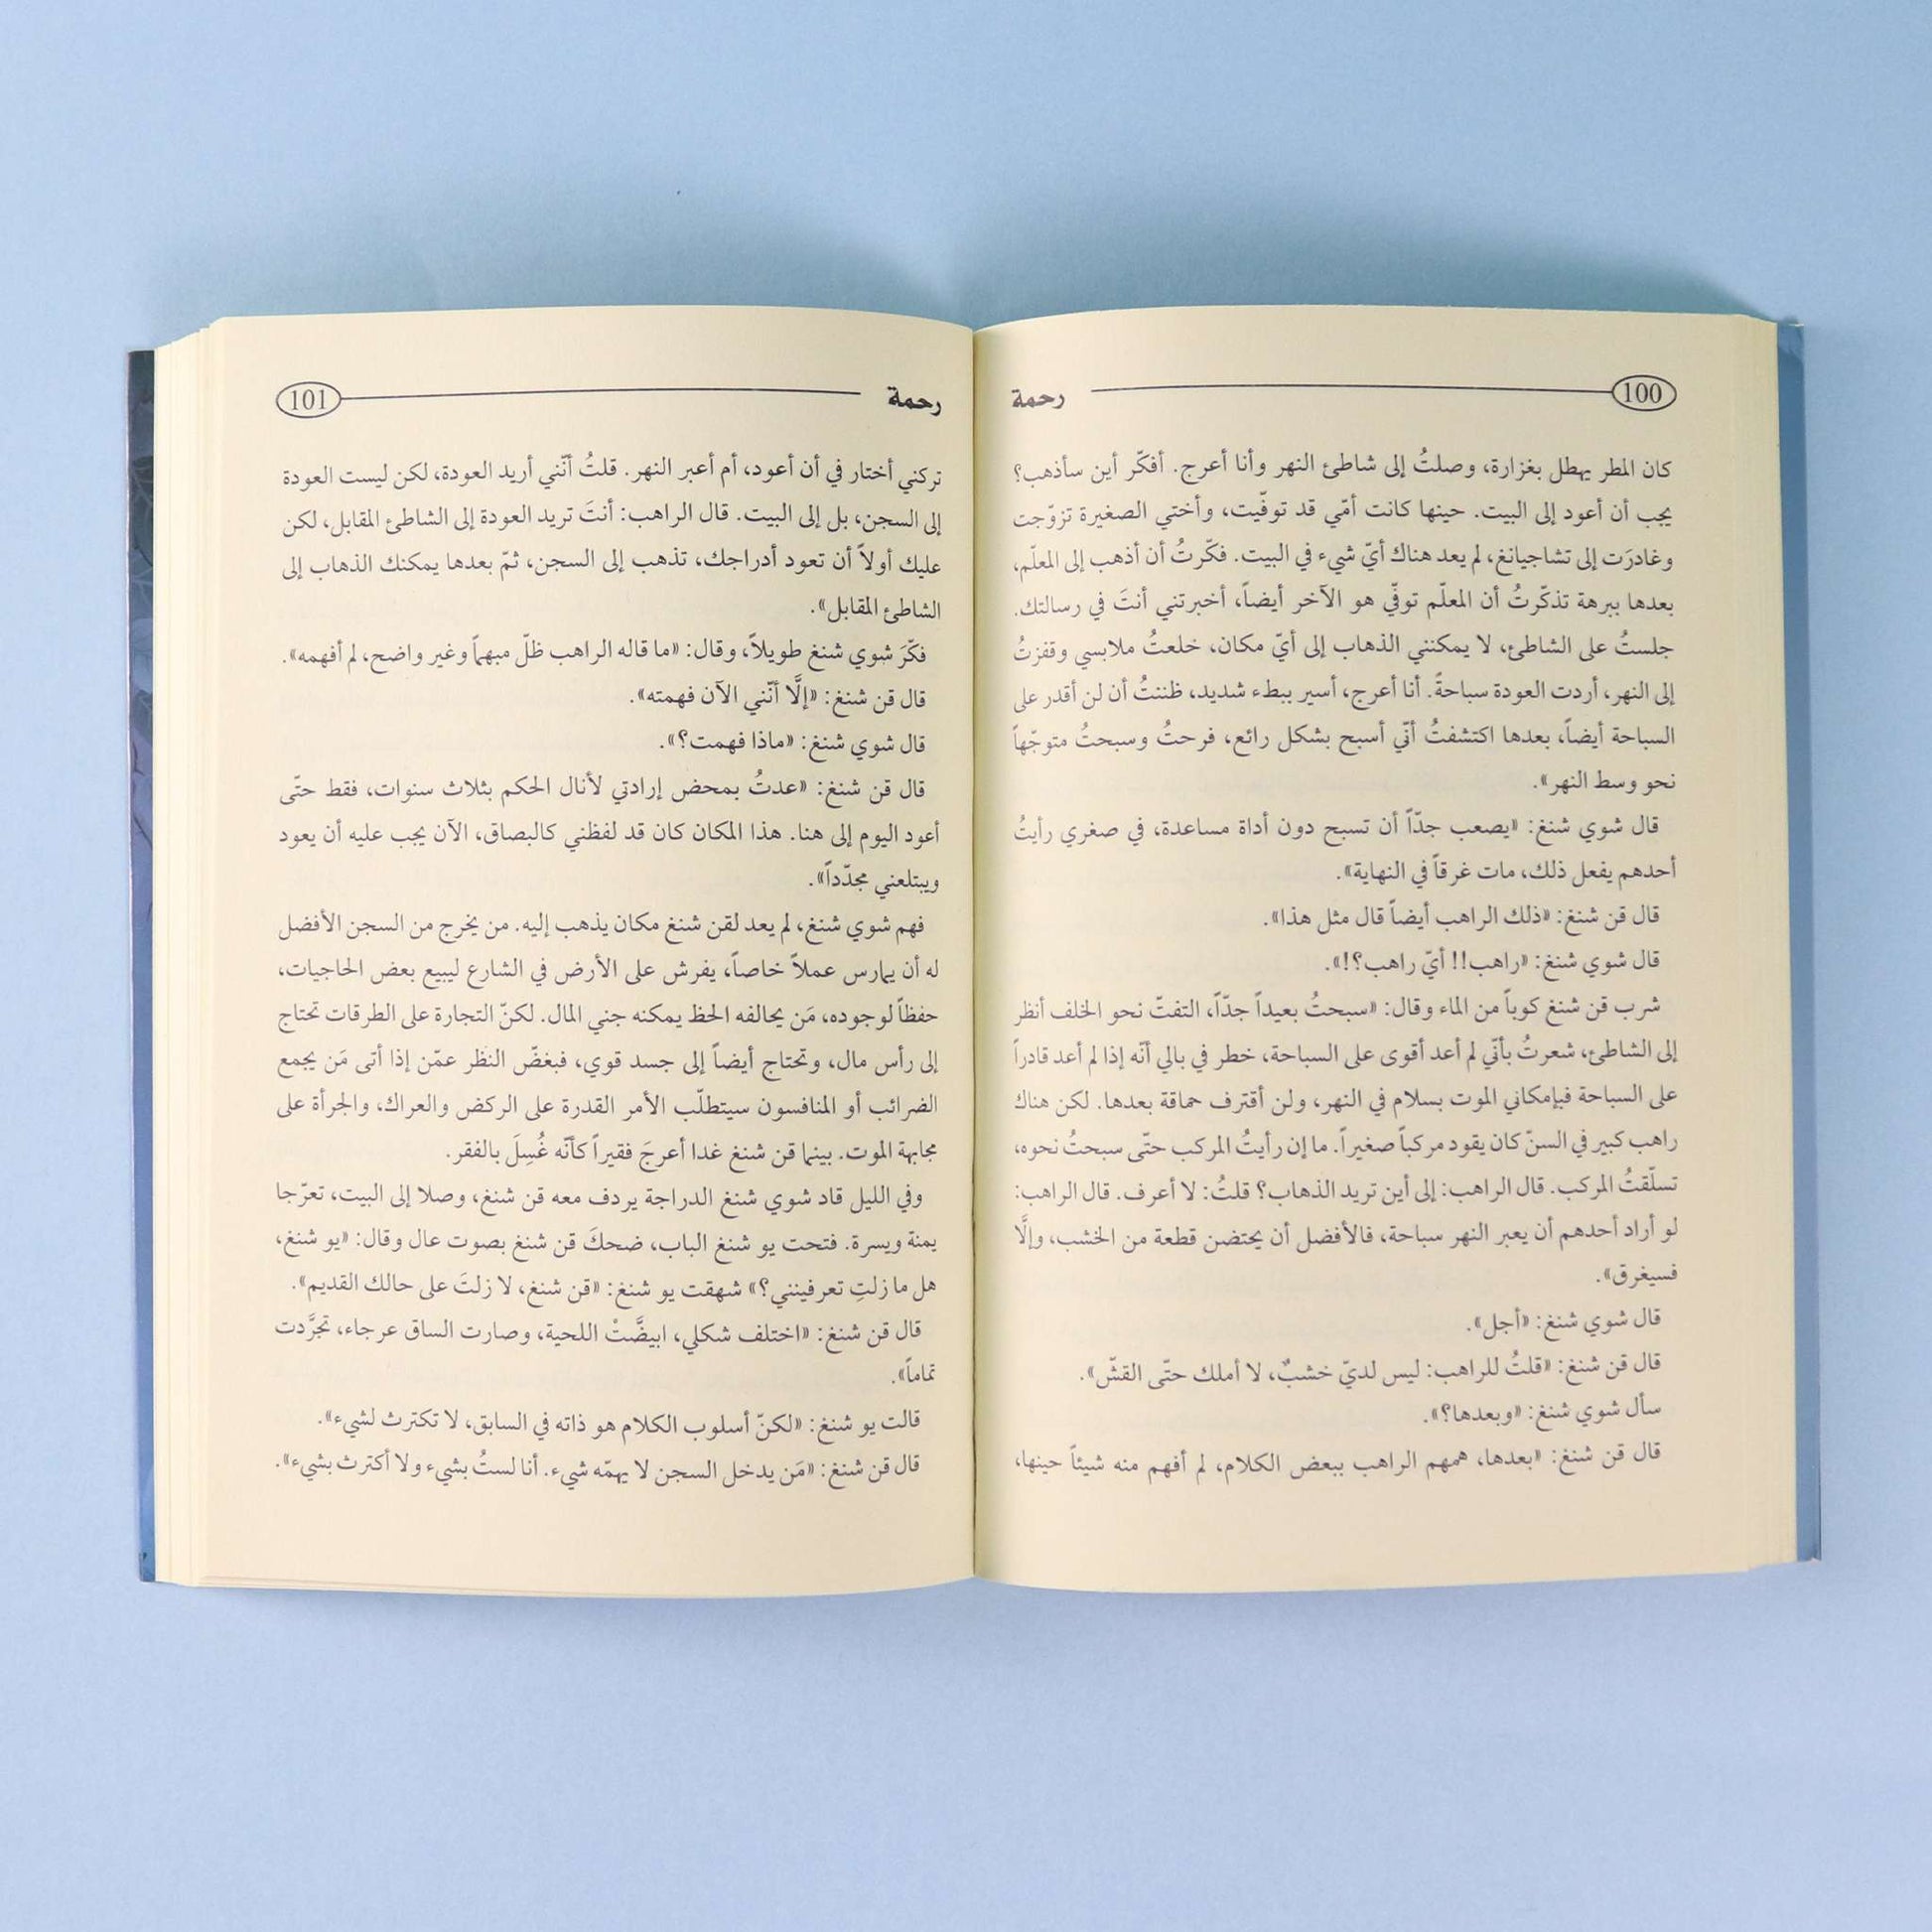 100 رحمة
كان المطر يهطل بغزارة، وصلتُ إلى شاطئ النهر وأنا أعرج. أفكّر أين سأذهب؟
يجب أن أعود إلى البيت. حينها كانت أمّي قد توفّيت، وأختي الصغيرة تزوّجت
وغادرَت إلى تشاجيانغ، لم يعد هناك أيّ شيء في البيت. فكّرتُ أن أذهب إلى المعلّم،
بعدها ببرهة تذكّرتُ أن المعلّم توفّي هو الآخر أيضاً، أخبرتني أنتَ في رسالتك.
جلستُ على الشاطئ، لا يمكنني الذهاب إلى أيّ مكان، خلعتُ ملابسي وقفزتُ
إلى النهر، أردت العودة سباحةً. أنا أعرج، أسير ببطء شديد، ظننتُ أن لن أقدر على
السباحة أيضاً، بعدها اكتشفتُ أنّي أسبح بشكل رائع، فرحتُ وسبحتُ متوجّهاً
نحو وسط النهر».
قال شوي شنغ: «يصعب جدّاً أن تسبح دون أداة مساعدة، في صغري رأيتُ
أحدهم يفعل ذلك، مات غرقاً في النهاية».
قال قن شنغ: «ذلك الراهب أيضاً قال مثل هذا».
قال شوي شنغ: «راهب!! أيّ راهب؟!».
شرب قن شنغ كوباً من الماء وقال: «سبحتُ بعيداً جدّاً، التفتّ نحو الخلف أنظر
إلى الشاطئ، شعرتُ بأنّي لم أعد أقوى على السباحة، خطر في بالي أنّه إذا لم أعد قادراً
على السباحة فبإمكاني الموت بسلام في النهر، ولن أقترف حماقة بعدها. لكن هناك
راهب كبير في السنّ كان يقود مركباً صغيراً. ما إن رأيتُ المركب حتّى سبحتُ نحوه،
تسلّقتُ المركب. قال الراهب: إلى أين تريد الذهاب؟ قلتُ: لا أعرف. قال الراهب:
لو أراد أحدهم أن يعبر النهر سباحة، فالأفضل أن يحتضن قطعة من الخشب، وإلَّا
فسيغرق».
قال شوي شنغ: «أجل».
قال قن شنغ: «قلتُ للراهب: ليس لديّ خشبٌ، لا أملك حتّى القشّ».
سأل شوي شنغ: «وبعدها؟».
قال قن شنغ: «بعدها، همهم الراهب ببعض الكلام، لم أفهم منه شيئاً حينها،
رحمة 101
تركني أختار في أن أعود، أم أعبر النهر. قلتُ أنّني أريد العودة، لكن ليست العودة
إلى السجن، بل إلى البيت. قال الراهب: أنتَ تريد العودة إلى الشاطئ المقابل، لكن
عليك أولاً أن تعود أدراجك، تذهب إلى السجن، ثمّ بعدها يمكنك الذهاب إلى
الشاطئ المقابل».
فكّرَ شوي شنغ طويلاً، وقال: «ما قاله الراهب ظلّ مبهماً وغير واضح، لم أفهمه».
قال قن شنغ: «إلَّا أنّني الآن فهمته».
قال شوي شنغ: «ماذا فهمت؟».
قال قن شنغ: «عدتُ بمحض إرادتي لأنال الحكم بثلاث سنوات، فقط حتّى
أعود اليوم إلى هنا. هذا المكان كان قد لفظني كالبصاق، الآن يجب عليه أن يعود
ويبتلعني مجدّداً».
فهم شوي شنغ، لم يعد لقن شنغ مكان يذهب إليه. من يخرج من السجن الأفضل
له أن يمارس عملاً خاصاً، يفرش على الأرض في الشارع ليبيع بعض الحاجيات،
حفظاً لوجوده، مَن يحالفه الحظ يمكنه جني المال. لكنّ التجارة على الطرقات تحتاج
إلى رأس مال، وتحتاج أيضاً إلى جسد قوي، فبغضّ النظر عمّن إذا أتى مَن يجمع
الضرائب أو المنافسون سيتطلّب الأمر القدرة على الركض والعراك، والجرأة على
مجابهة الموت. بينما قن شنغ غدا أعرجَ فقيراً كأنّه غُسِلَ بالفقر.
وفي الليل قاد شوي شنغ الدراجة يردف معه قن شنغ، وصلا إلى البيت، تعرّجا
يمنة ويسرة. فتحت يو شنغ الباب، ضحكَ قن شنغ بصوت عال وقال: «يو شنغ،
هل ما زلتِ تعرفينني؟» شهقت يو شنغ: «قن شنغ، لا زلتَ على حالك القديم».
قال قن شنغ: «اختلف شكلي، ابيضَّتْ اللحية، وصارت الساق عرجاء، تجرَّدت
تماماً».
قالت يو شنغ: «لكنّ أسلوب الكلام هو ذاته في السابق، لا تكترث لشيء».
قال قن شنغ: «مَن يدخل السجن لا يهمّه شيء. أنا لستُ بشيء ولا أكترث بشيء».